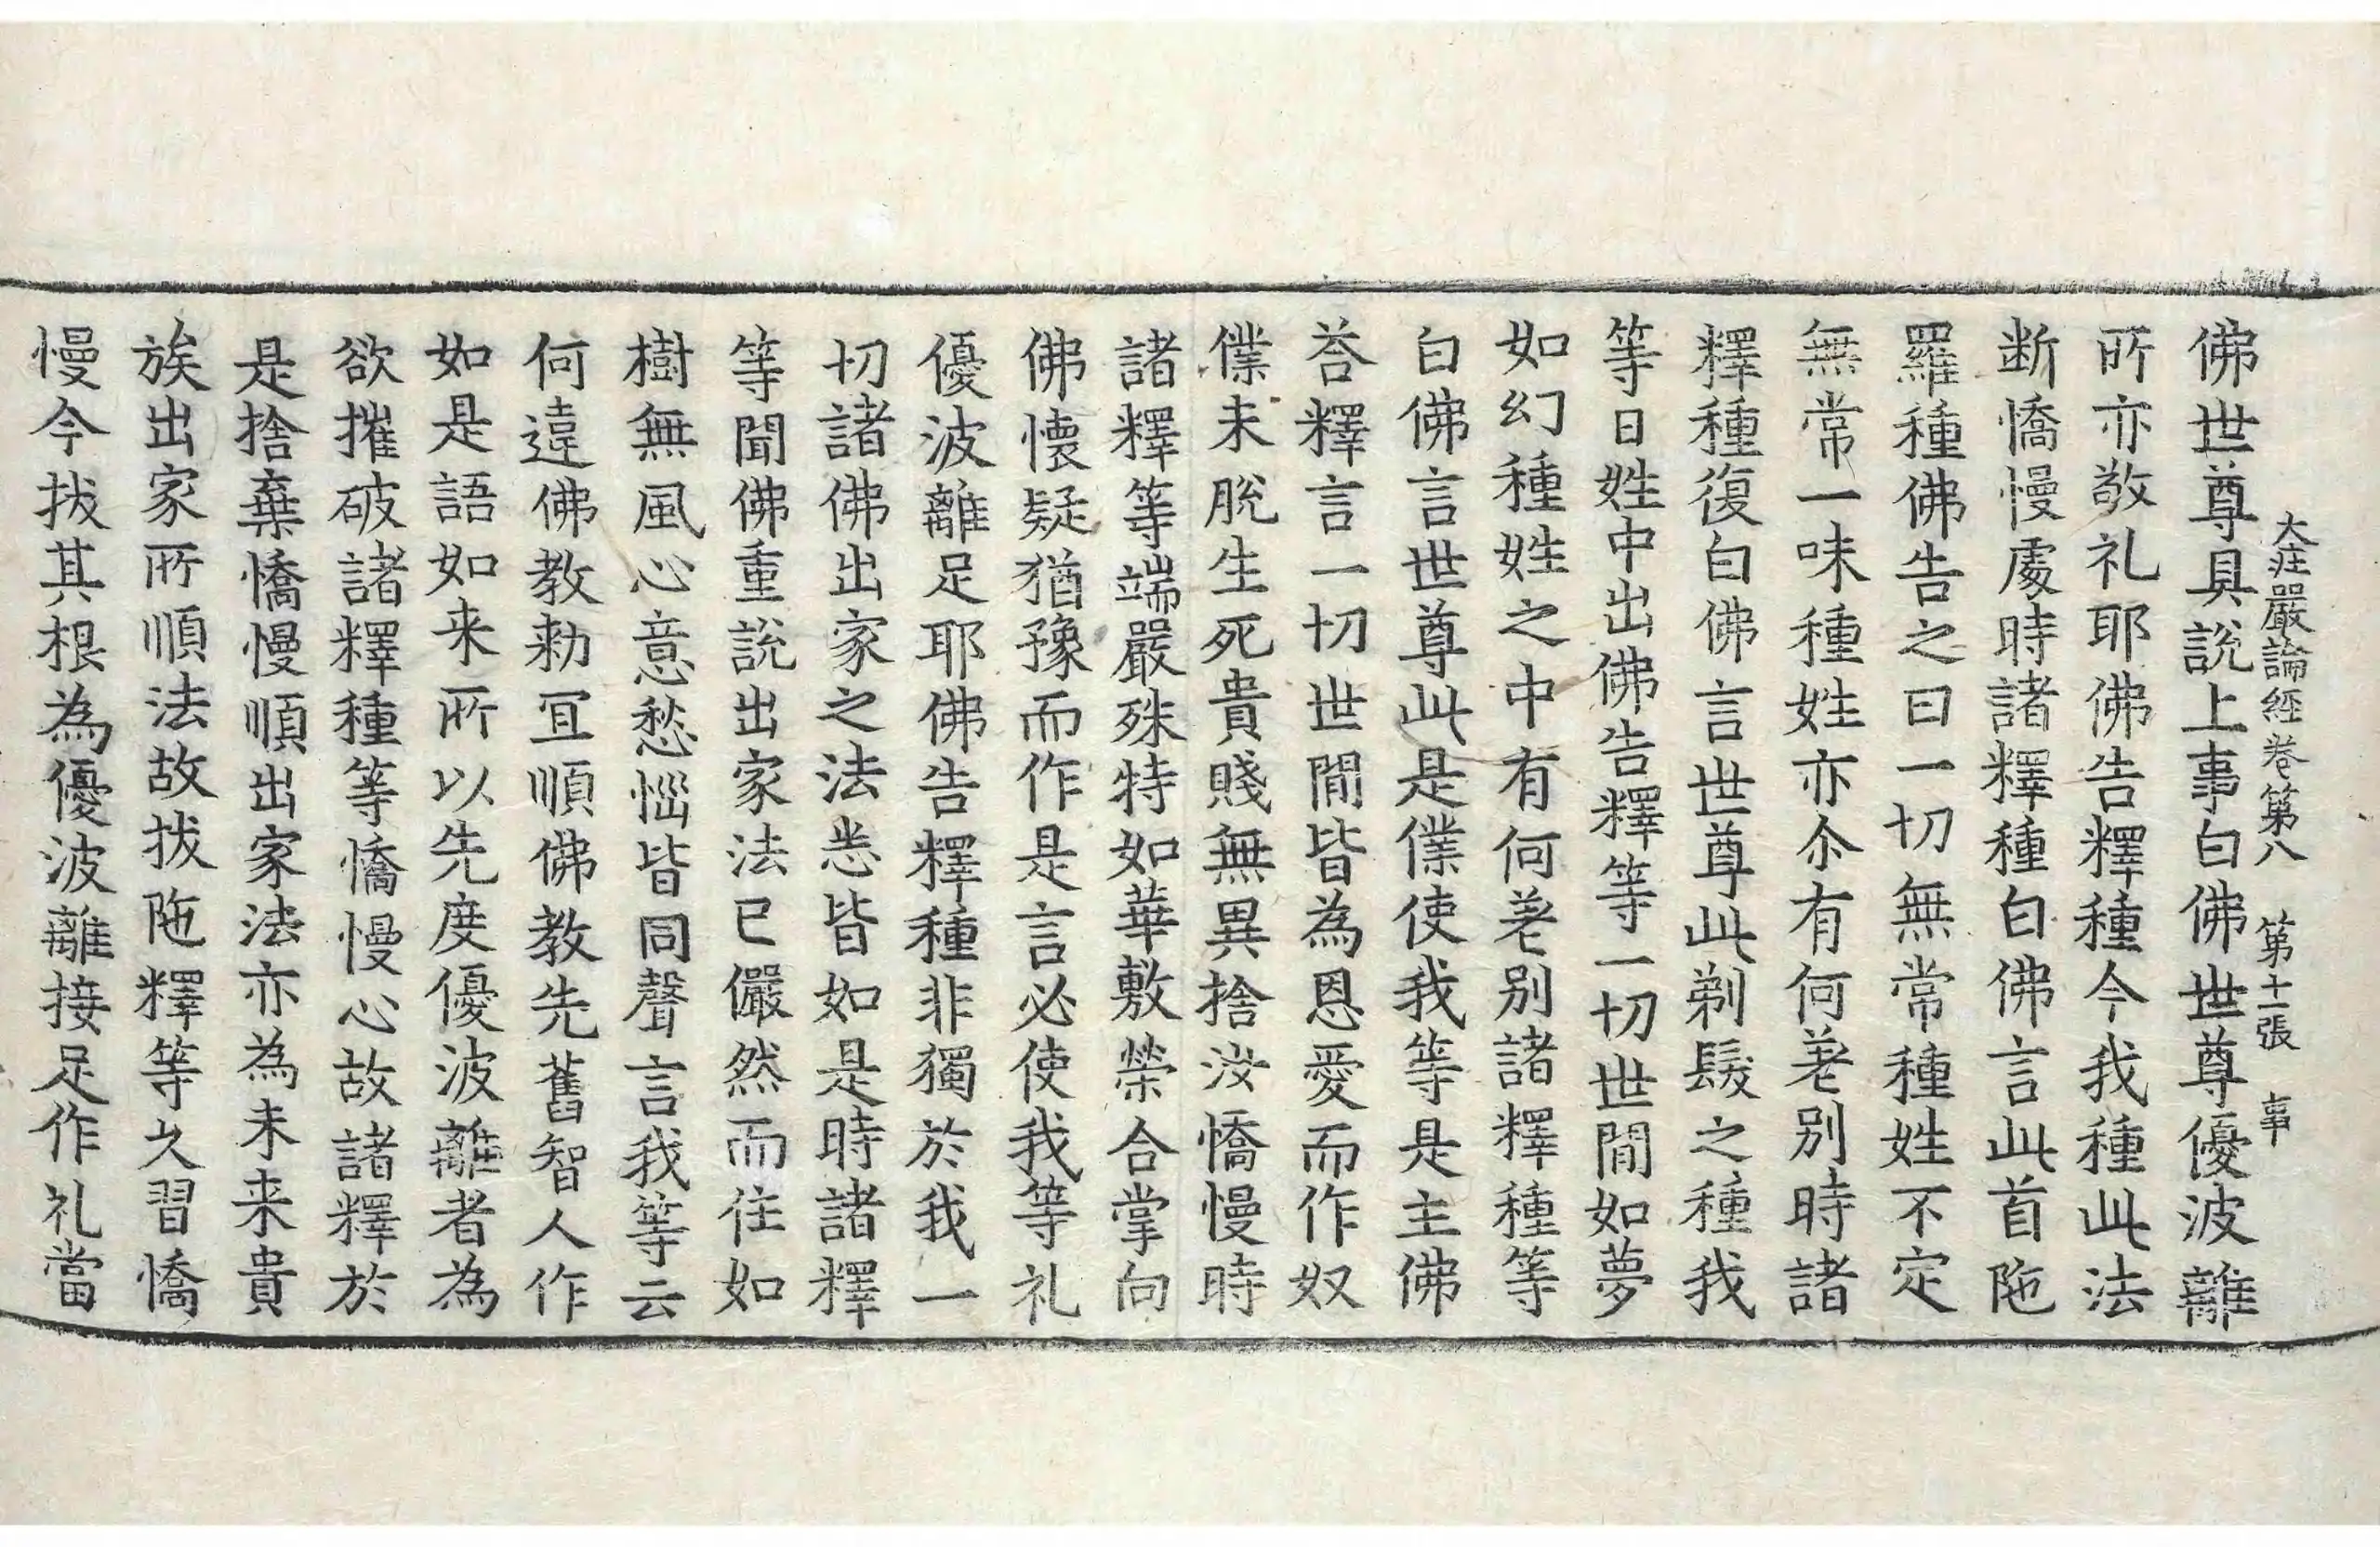 大庄嚴論經卷第八 第十一張 事
佛世尊具說上事白佛世尊優波離
所亦敬礼耶佛告釋種今我種此法
断憍慢處時諸釋種白佛言此首陁
羅種佛告之曰一切無常種姓不定
無常一味種姓亦尒有何差別時諸
釋種復白佛言世尊此剃髮之種我
等日姓中出佛告釋等一切世間如夢
如幻種姓之中有何差別諸釋種等
白佛言世尊此是僕使我等是主佛
荅釋言一切世間皆為恩愛而作奴
僕未脫生死貴賤無異捨汝憍慢時
諸釋等端嚴殊特如華敷榮合掌向
佛懷疑猶豫而作是言必使我等礼
優波離足耶佛告釋種非獨於我一
切諸佛出家之法悉皆如是時諸釋
等聞佛重說出家法已儼然而住如
樹無風心意愁惱皆同聲言我等云
何違佛教勑冝順佛教先舊智人作
如是語如来所以先度優波離者為
欲摧破諸釋種等憍慢心故諸釋於
是捨棄憍慢順出家法亦為未来貴
族出家所順法故拔陁釋等久習憍
慢今拔其根為優波離接足作礼當